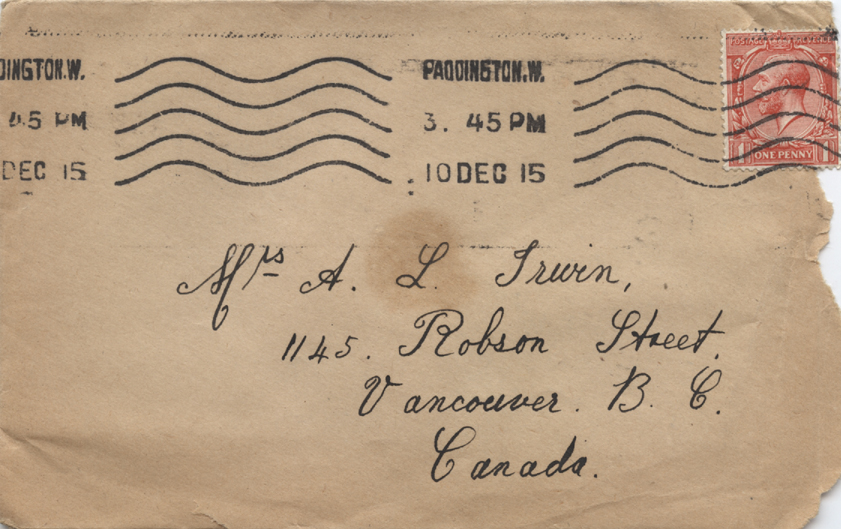 DINGTON.W. PADDINGTON.W.
45 PM 3. 45 PM
DEC 15 10 DEC 15
POSTAGE REVENUE
1 ONE PENNY 1
Mrs A. L. Irwin,
1145. Robson Street.
Vancouver. B. C.
Canada.